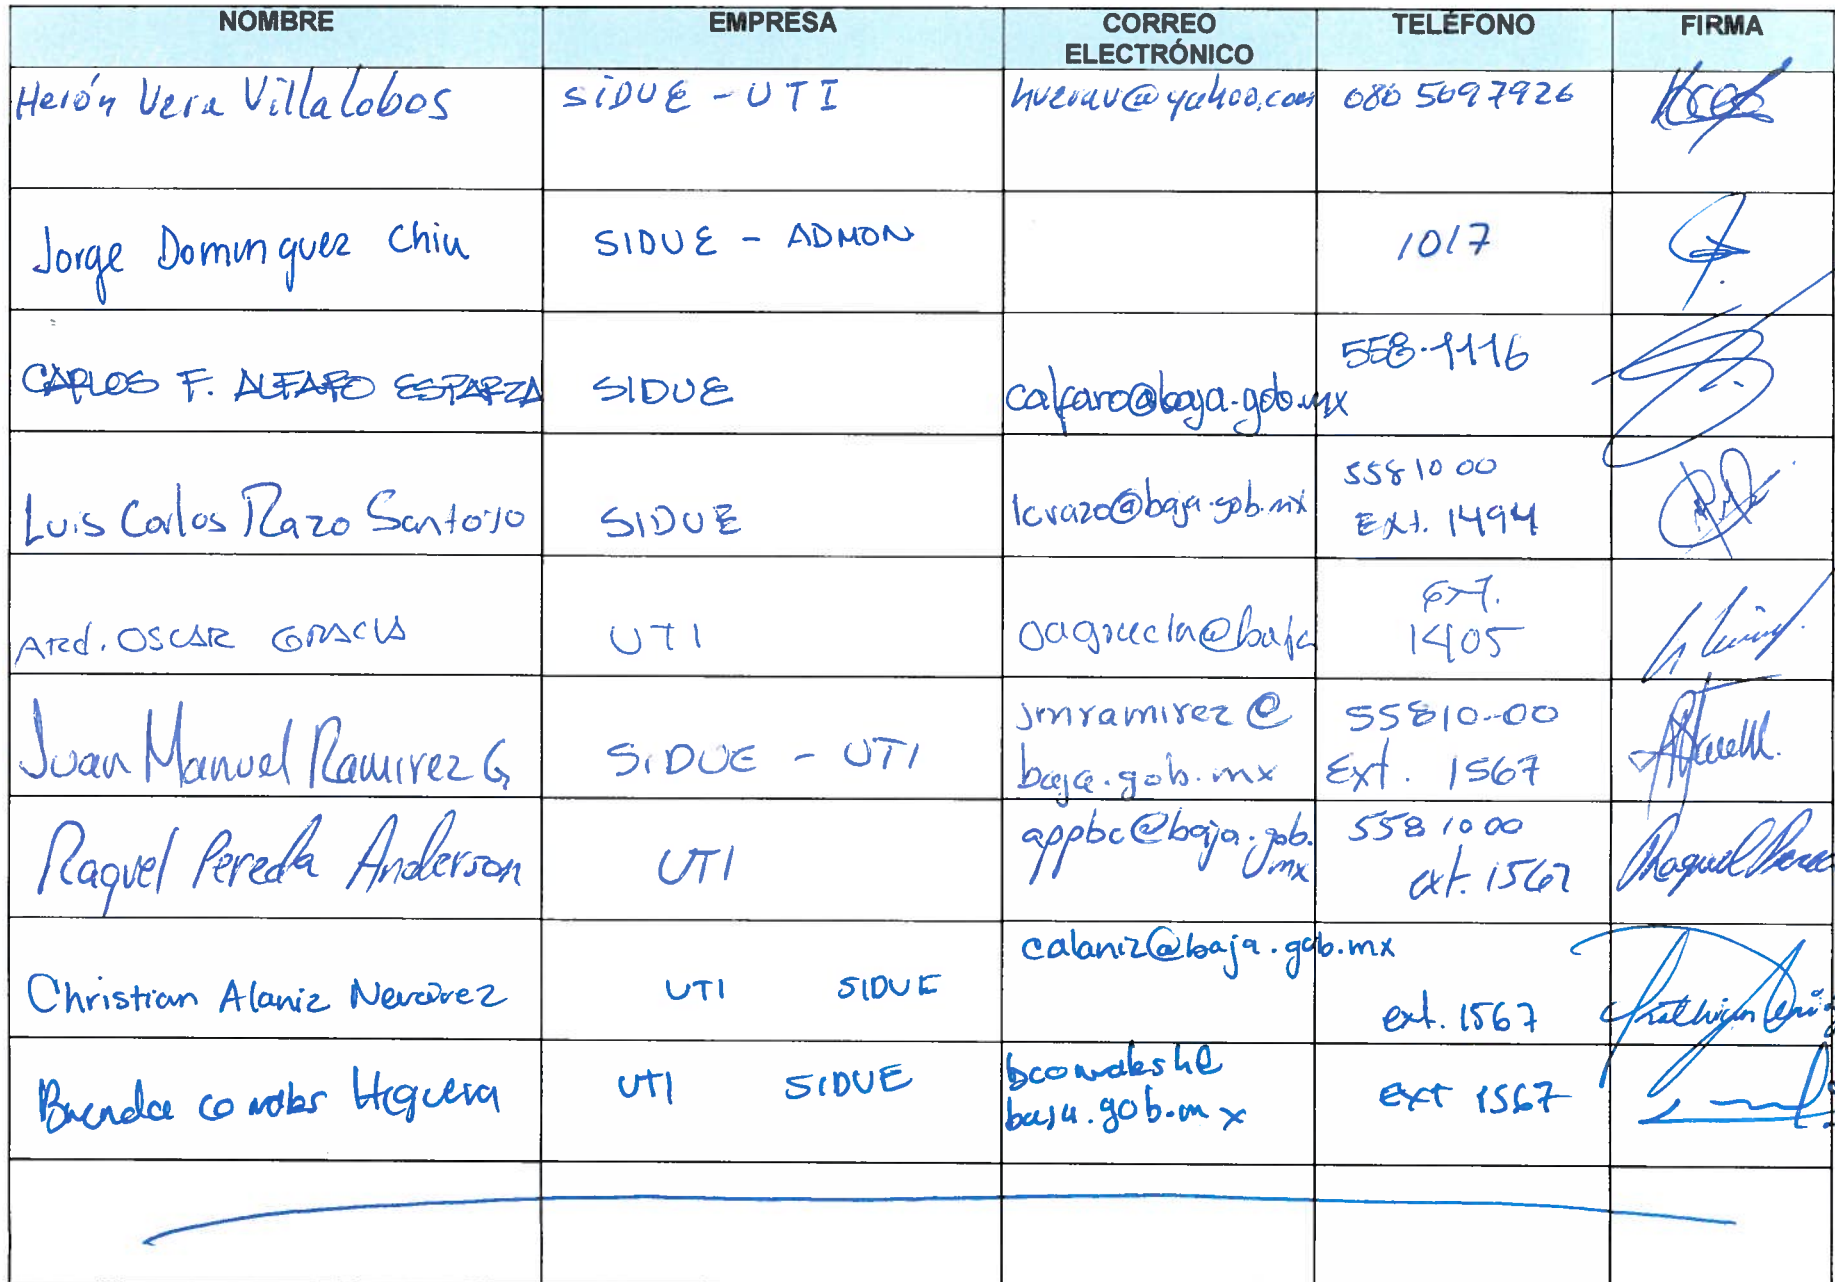 NOMBRE EMPRESA CORREO ELECTRÓNICO TELÉFONO FIRMA
Herón Vera Villalobos SIDUE - UTI hverav@yahoo.com 080 5697926
Jorge Dominguez Chiu SIDUE - ADMON 1017
CARLOS F. ALFARO ESPARZA SIDUE calfaro@baja.gob.mx 558-1116
Luis Carlos Razo Santoyo SIDUE lcrazo@baja.gob.mx 558 10 00 Ext. 1494
OSCAR GRACIA UTI oagracia@baja ext. 1405
Juan Manuel Ramirez G. SIDUE - UTI jmramirez@ baja.gob.mx 55810-00 Ext. 1567
Raquel Pereda Anderson UTI appbc@baja.gob.mx 558 10 00 ext. 1567
Christian Alaniz Nevarez UTI SIDUE calaniz@baja.gob.mx ext. 1567
Brenda Higuera UTI SIDUE baja.gob.mx ext 1567